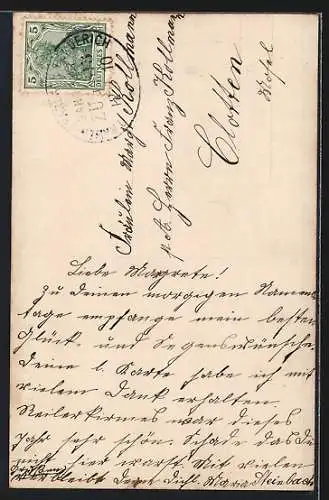 5 5
DEUTSCHES REICH
Fräulein Margt Kollmann
p. ad. Herrn Franz Kollmann
Clotten
Mosel
Liebe Margrete!
Zu deinem morgigen Namens
tage empfange mein besten
Glück- und Segenswünsche.
Deine l. Karte habe ich mit
vielem Dank erhalten.
Reilerkirmes war dieses
Jahr sehr schön. Schade das Du
nicht hier warst. Mit vielen
Grüßen
verbleibt Deine Maria Steinbach